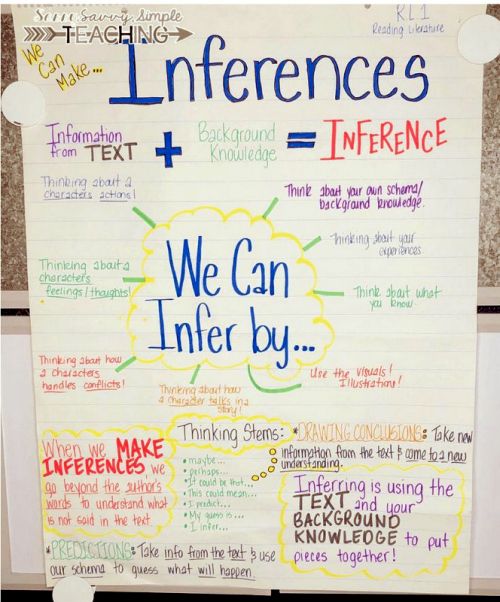 Some Savvy Simple
TEACHING
RL1
Reading Literature
We
Can
Make...
Inferences
Information
from TEXT
+
Background
Knowledge
=
INFERENCE
Thinking about a
characters actions!
Think about your own schema/
background knowledge.
Thinking about your
experiences
Thinking about a
characters
feelings/thoughts!
Think about what
you know
We Can
Infer by...
Thinking about how
a characters
handles conflicts!
Thinking about how
a character talks in a
story!
Use the visuals!
Illustrations!
When we MAKE
INFERENCES we
go beyond the author's
words to understand what
is not said in the text
Thinking Stems:
• maybe...
• perhaps...
• It could be that...
• This could mean...
• I predict...
• My guess is...
• I infer...
*DRAWING CONCLUSIONS: Take new
information from the text & come to a new
understanding.
Inferring is using the
TEXT and your
BACKGROUND
KNOWLEDGE to put
pieces together!
*PREDICTIONS: Take info from the text & use
our schema to guess what will happen.